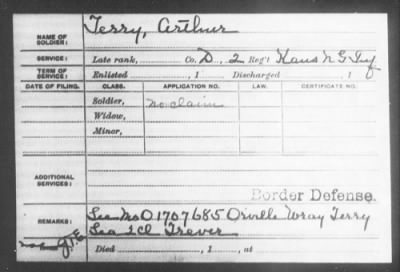 NAME OF SOLDIER: Terry, Arthur
SERVICE: Late rank, Co. D, 2 Reg't Kans N G Inf
TERM OF SERVICE: Enlisted , 1 Discharged , 1
DATE OF FILING. CLASS. APPLICATION NO. LAW. CERTIFICATE NO.
Soldier, no claim
Widow,
Minor,
ADDITIONAL SERVICES:
Border Defense.
REMARKS: See Mo O 1707685 Orville Wray Terry
Sea 2Cl Trever
J.I.E.
Died , 1 , at